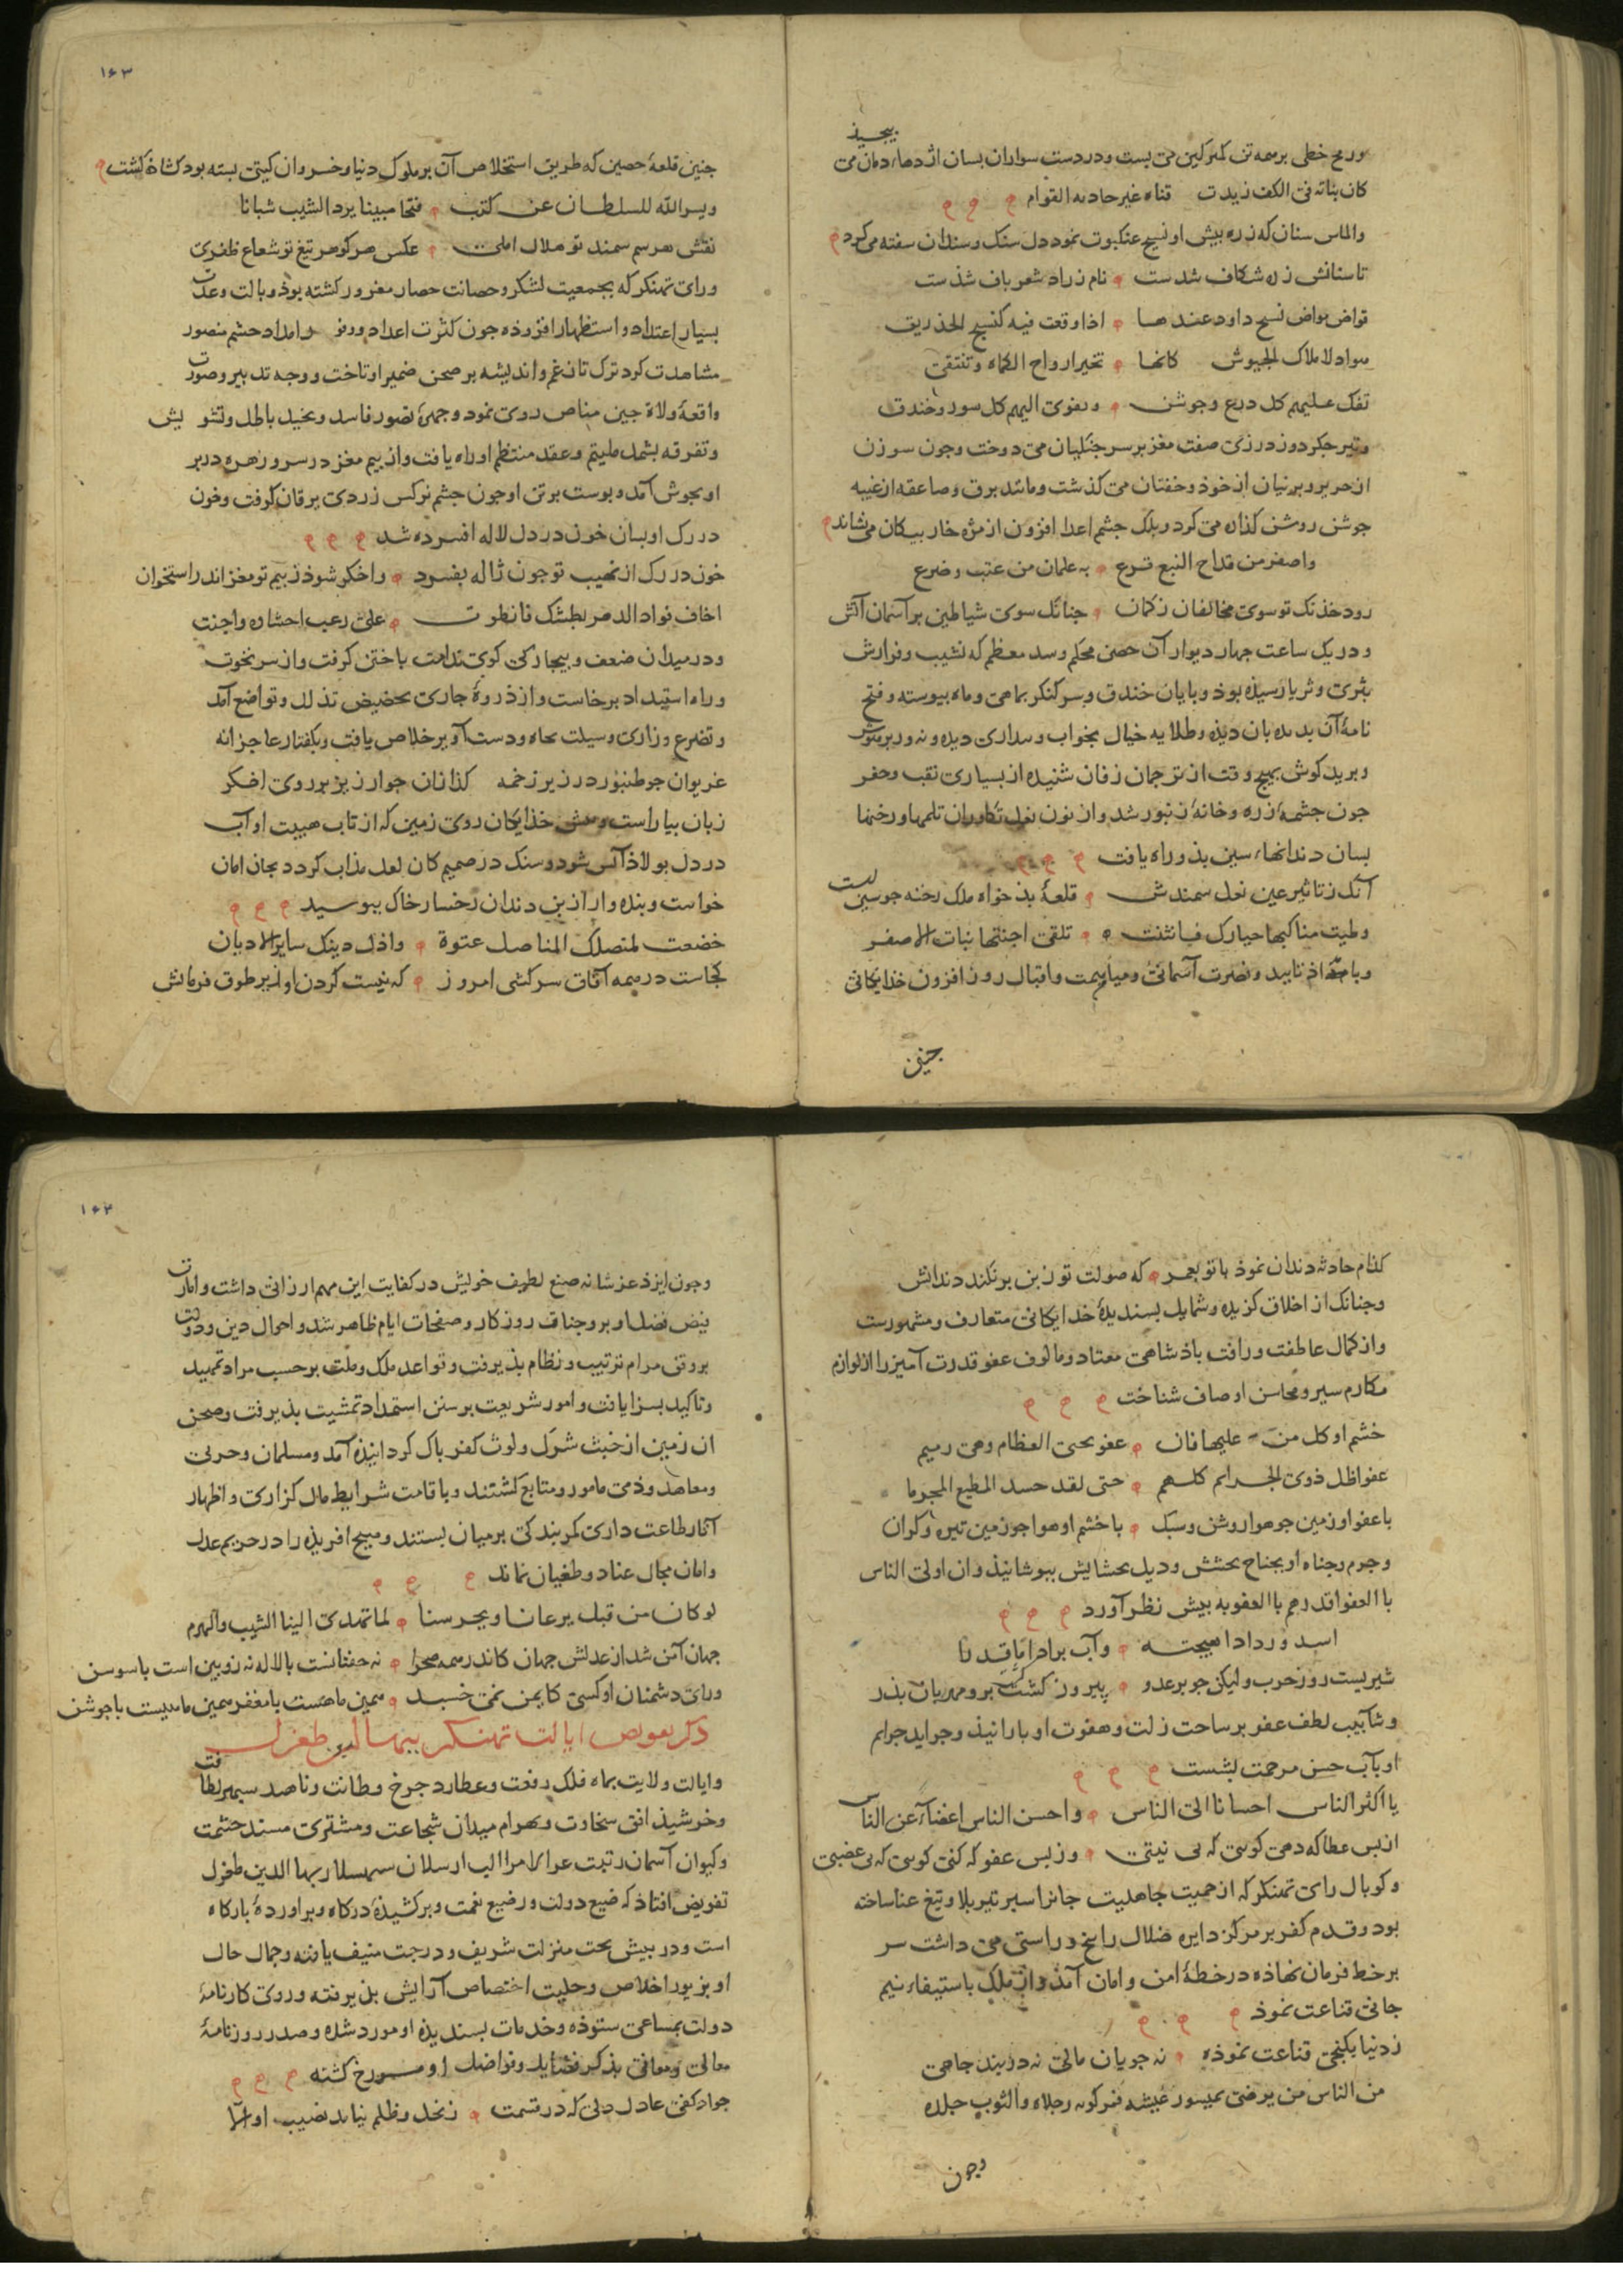 ورمح خطی برسمه تن کمر کین می بست ودر دست سواران بسان اژدهاء دمان می
بیجید
کان بنانه فی الکف زیدت قناه غیر حادثه القوام
والماس سنان که زره بیش او نسیج عنکبوت نمود دل سنک وسندان سفته می کرد
تا سنانش زره شکاف شدست نام زراد شعر باف شدست
قواض مواض نسج داود عندها اذا وقعت فیه کنسج الخذریق
هواد لاملاک الجیوش کانها تخیر ارواح الکماه وتنتقی
تفک علیهم کل درع وجوشن وتفری الیهم کل سور وخندق
وتیر جکر دوز درزی صفت مغز بر سر جنکیان می دوخت وجون سوزن
از حریر وپرنیان از خوذ وخفتان می کذشت ومانند برق وصاعقه از غیبه
جوشن روشن کذاره می کرد وبلک جشم اعدا افزون از مژه خار بیکان می نشاند
واصفر من قداح النبع فرع به علمان من عقب وضرع
رود خذنک تو سوی مخالفان زکمان جنانک سوی شیاطین بر آسمان آتش
ودر یک ساعت جهار دیوار آن حصن محکم وسد معظم که نشیب وفرازش
بثری وثریا رسیذه بوذ وبایان خندق وسر کنکر بماهی وماه بیوسته وفتح
نامۀ آن بدیده بان دیذه وطلایه خیال بخواب وبیداری دیده ونه ور بر هوش
وبرید کوش بهیج وقت از ترجمان زفان شنیده از بسیاری نقب وحفر
جون جشمۀ زره وخانۀ زنبور شد واز نون نعل تکاوران ثلمها ورخنها
بسان دندانهاء سین بذو راه یافت
آنک ز تاثیر عین نعل سمندش قلعۀ بذ خواه ملک رخنه جو سین است
وطیت مناکبها حیارک فانثنت تلقی اجنتها نبات الاصفر
وبامداد تایید ونصرت آسمانی ومیامن همت واقبال روز افزون خذایکانی
جنین
۱۶۳
جنین قلعۀ حصین که طریق استخلاص آن بر ملوک دنیا وخسروان کیتی بسته بود کشاذه کشت
ویسر الله للسلطان عن کثب فتحا مبینا یرد الشیب شبانا
نقش هر سم سمند تو هلال امل عکس هر کوهر تیغ تو شعاع ظفری
ورای تهنکر که بجمعیت لشکر وحصانت حصار مغرور کشته بوذ وبالت وعدت
بسیار اعتداد واستظهار افزوذه جون کثرت اعداد ووفور امداد حشم منصور
مشاهدت کرد ترک تاز غم واندیشه بر صحن ضمیر او تاخت ووجه تدبیر وصورت
واقعۀ ولات حین مناص روی نمود وجهرۀ تصور فاسد وتخیل باطل وتشویش
وتفرقه بشمل ملتیم وعقد منتظم او راه یافت واز بیم مغز در سر وزهره در بر
او بجوش آمد وبوست بر تن او جون جشم نرکس زردی یرقان کرفت وخون
در رک او بسان خون در دل لاله افسرده شد
خون در رک از نهیب تو جون ژاله بفسرد واخکر شوذ ز بیم تو مغز اندر استخوان
اخاف فواد الدهر بطشک فانطوت علی رعب احشاوه واجنت
ودر میدان ضعف وبیجارکی کوی ندامت باختن کرفت واز سر نخوت
وراه استبداد برخاست واز ذروۀ جباری بحضیض تذلل وتواضع آمد
وتضرع وزاری وسیلت نجاه ودست آویز خلاص یافت وبکفتار عاجزانه
غریوان جو طنبور در زیر زخمه کذازان جو ارزیز بر روی اخکر
زبان بیاراست وپیش خذایکان روی زمین که از تاب هیبت او آب
در دل بولاذ آتش شود وسنک در صمیم کان لعل مذاب کردد بجان امان
خواست وبنده وار از بن دندان رخسار خاک ببوسید
خضعت لمنصلک المناصل عنوة واذل دینک سایر الادیان
کجاست در همه آفاق سرکشی امروز که نیست کردن او زیر طوق فرمانش
کذام حادثه دندان نموذ با تو بعمر که صولت تو ز بن برنکند دندانش
وجنانک از اخلاق کزیده وشمایل بسندیدۀ خدایکانی متعارف ومشهورست
واز کمال عاطفت ورافت باذشاهی معتاد ومالوف عفو قدرت آمیز را از لوازم
مکارم سیر ومحاسن اوصاف شناخت
خشم او کل من علیها فان عفو یحیی العظام وهی رمیم
عفو اظل ذوی الجرایم کلهم حتی لقد حسد المطیع المجرما
با عفو او زمین جو هوا روشن وسبک با خشم او هوا جو زمین تیره وکران
وجرم وجناه او بجناح بخشش وذیل بخشایش ببوشانیذ وان اولی الناس
بالعفو اقدرهم بالعقوبه بیش نظر آورد
اسد ورد اذا هیجته وآب براد اما قدرنا
شیریست روز حرب ولیکن جو بر عدو پیروز کشت برو مهربان پذر
وشآبیب لطف عفو بر ساحت زلت وهفوت او بارانیذ وجراید جرایم
او بآب حسن مرحمت بشست
یا اکثر الناس احسانا الی الناس واحسن الناس اغضاء عن الناس
از بس عطا که دهی کوئی که بی نیتی وز بس عفو که کنی کوئی که بی غضبی
وکوبال رای تهنکر که از حمیت جاهلیت جانرا سبر تیر بلا وتیغ عنا ساخته
بود وقدم کفر بر مرکز دایره ضلال راسخ وراستی می داشت سر
بر خط فرمان نهاذه در خطۀ امن وامان آمذ واز ملک باستیفاء نیم
جانی قناعت نموذ
ز دنیا بکنجی قناعت نموذه نه جویان مالی نه در بند جاهی
من الناس من یرضی بمیسور عیشه فمرکوبه رجلاه والثوب جلده
وجون
۱۶۴
وجون ایزد عز شانه صنع لطیف خویش در کفایت این مهم ارزانی داشت وامارت
فیض فضل او بر وجنات روزکار وصفحات ایام ظاهر شد واحوال دین ودولت
بر وفق مرام ترتیب ونظام بذیرفت وقواعد ملک وملت بر حسب مراد تمهید
وتاکید بسزا یافت وامور شریعت بر سنن استمداد تمشیت بذیرفت وصحن
ان زمین از خبث شرک ولوث کفر باک کردانیذه آمد ومسلمان وحربی
ومعاهد وذمی مامور ومتابع کشتند وباقامت شرایط مال کزاری واظهار
آثار طاعت داری کمر بندکی بر میان بستند وهیج افریذه را در حریم عدل
وامان مجال عناد وطغیان نماند
لو کان من قبل یرعانا ویحرسنا لما تهدی الینا الشیب والهرم
جهان آمن شد از عدلش جهان کاندر همه صحرا نه خفتانست با لاله نه زوبین است با سوسن
ورای دشمنان او کسی کایمن نمی خسبد همین ماهست با مغفر همین ماهیست با جوشن
ذکر تفویض ایالت تهنکر ببهاالدین طغرل
وایالت ولایت بماه فلک رفعت وعطارد جرخ فطانت وناهید سبهر لطافت
وخرشیذ افق سخاوت وبهرام میدان شجاعت ومشتری مسند حشمت
وکیوان آسمان رتبت عز الامرا الب ارسلان سبهسلار بهاالدین طغرل
تفویض افتاد که ضیع دولت ورضیع نعمت وبرکشیذۀ درکاه وبراوردۀ بارکاه
است ودر بیش تخت منزلت شریف ودرجت منیف یافته وجمال حال
او بزیور اخلاص وحلیت اختصاص آرایش بذیرفته وروی کارنامۀ
دولت بمساعی ستوذه وخدمات بسندیذه او مورد شده وصدر روزنامۀ
معالی ومعانی بذکر فضایل وفواضل او مورخ کشته
جواد کفی عادل دلی که در قسمت ز بخل وظلم نیامد نصیب او الا